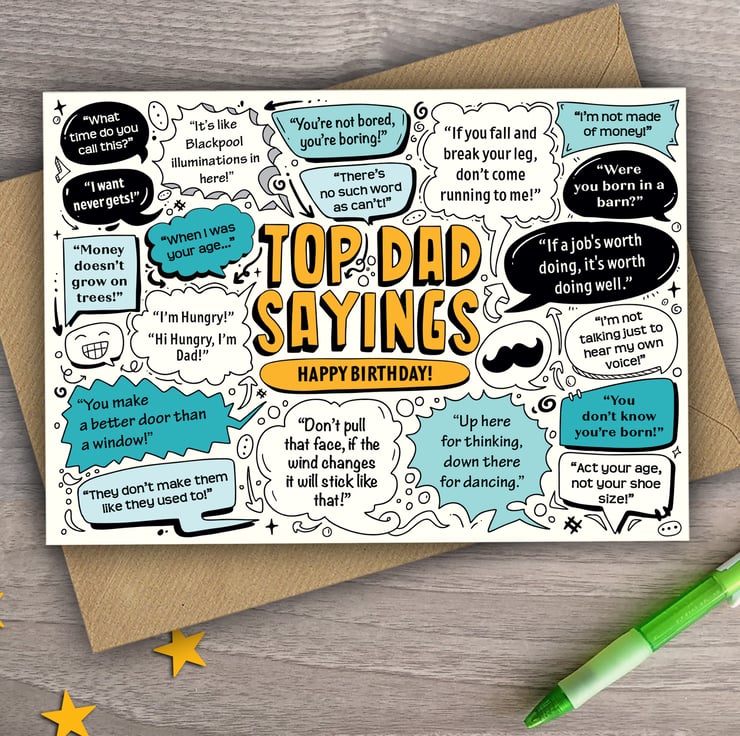 “What
time do you
call this?”
“It’s like
Blackpool
illuminations in
here!”
“You’re not bored,
you’re boring!”
“If you fall and
break your leg,
don’t come
running to me!”
“I’m not made
of money!”
“I want
never gets!”
“There’s
no such word
as can’t!”
“Were
you born in a
barn?”
“Money
doesn’t
grow on
trees!”
“When I was
your age...”
TOP DAD
SAYINGS
HAPPY BIRTHDAY!
“If a job’s worth
doing, it’s worth
doing well.”
“I’m Hungry!”
“Hi Hungry, I’m
Dad!”
“I’m not
talking just to
hear my own
voice!”
“You make
a better door than
a window!”
“Don’t pull
that face, if the
wind changes
it will stick like
that!”
“Up here
for thinking,
down there
for dancing.”
“You
don’t know
you’re born!”
“They don’t make them
like they used to!”
“Act your age,
not your shoe
size!”